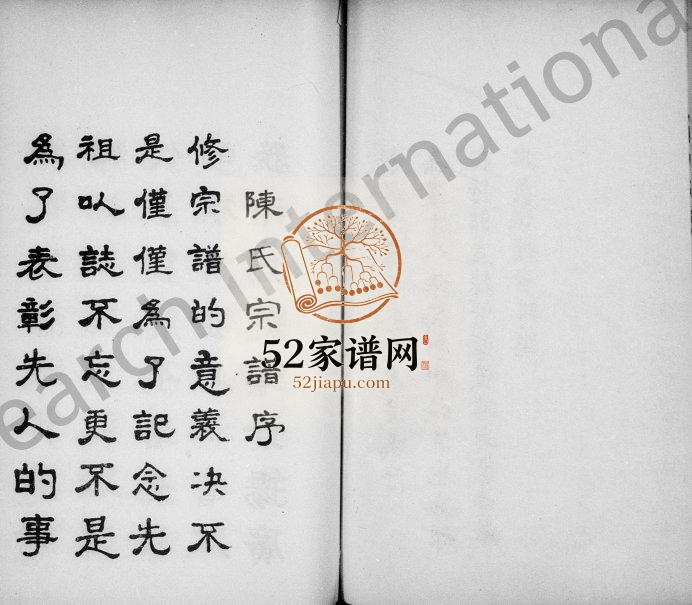 陳氏宗譜序
修宗譜的意義決不
是僅僅為了記念先
祖以誌不忘更不是
為了表彰先人的事
52家谱网
52jiapu.com
earch Internationa